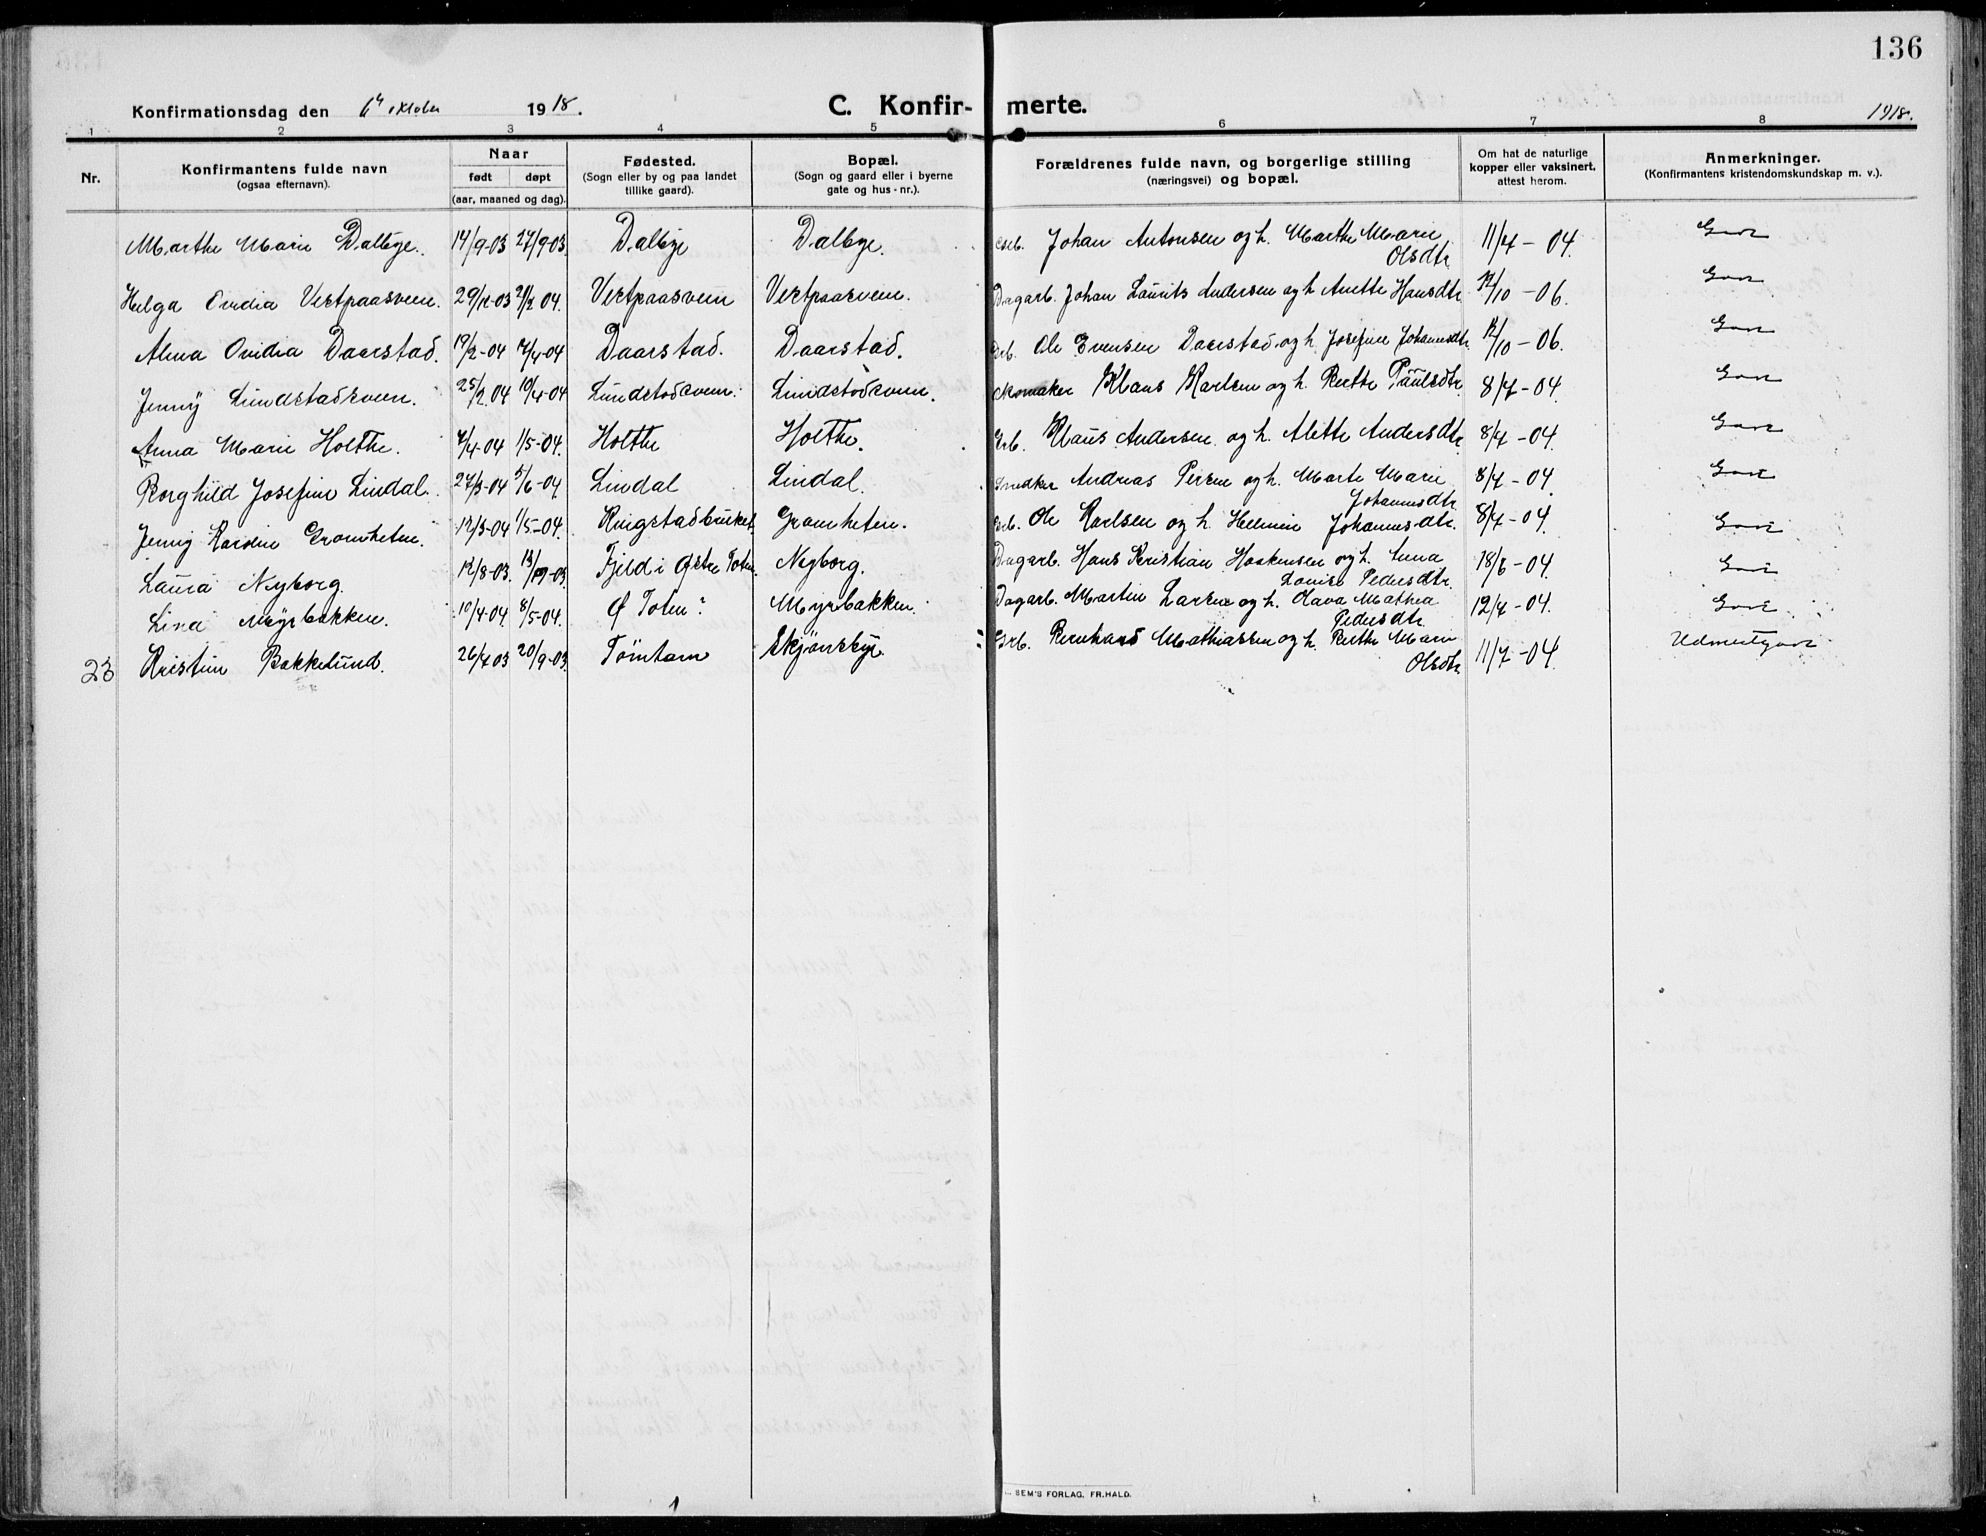 136
Konfirmationsdag den 6te oktober 1918.
C. Konfirmerte.
1918.
1 2 3 4 5 6 7 8
Nr.
Konfirmantens fulde navn
(ogsaa efternavn).
Naar
født døpt
(aar, maaned og dag).
Fødested.
(Sogn eller by og paa landet
tillike gaard).
Bopæl.
(Sogn og gaard eller i byerne
gate og hus-nr.).
Forældrenes fulde navn, og borgerlige stilling
(næringsvei) og bopæl.
Om hat de naturlige
kopper eller vaksinert,
attest herom.
Anmerkninger.
(Konfirmantens kristendomskundskap m. v.).
Marthe Marie Dalbye. 14/9-03 27/9-03. Dalbye Dalbye. Johan Antonsen og h. Marthe Marie 11/7-04. Godt
Olsdtr
Helga Ovidia Vestpaasveen. 29/12-03 21/2 04. Vestpaasveen Vestpaasveen. Dagarb. Johan Laurits Andersen og h. Anette Hansdtr. 12/10-06. Godt
Alma Ovidia Daarstad. 19/2-04 17/4-04 Daarstad. Daarstad. Grb. Ole Evensen Daarstad og h. Josefine Johannesdtr. 12/10-06. Godt
Jenny Lundstadsveen. 25/2 04 10/4-04 Lundstadsveen. Lundstadsveen. Skomaker Klaus Karlsen og h. Berthe Paulsdtr 8/7-04. Godt
Anna Marie Holthe. 4/4-04 1/5-04. Holthe Holthe. Grb. Klaus Andersen og h. Alette Andersdtr. 8/7-04. Godt
Borghild Josefine Lindal. 27/3-04 5/6-04 Lindal Lindal. Snedker Andreas Persen og h. Marte Marie 8/7-04. Godt
Johannesdtr
Jenny Karoline Gramheten. 12/3-04 1/5-04. Ringstadbruket Gramheten. Grb. Ole Karlsen og h. Helmine Johannesdtr. 8/7-04. Godt
Laura Nyborg. 12/8-03. Fjeld i Østre Toten. Nyborg. Dagarb. Hans Kristian Haakensen og h. Anna 18/6-04. Godt
Louise Pedersdtr.
Lina Myrbakken. 10/4-04. 8/5-04. Ø Toten? Myrbakken. Dagarb. Martin Larsen og h. Olava Mathea 12/7-04. Godt
Pedersdtr.
23 Kristine Bakkelund. 26/7 03 20/9-03. Tømtam Skjønsbye. Grb. Bernhard Mathiassen og h. Berthe Marie 11/7-04. Udmerket godt
Olsdtr
SEM'S FORLAG, FR.HALD.